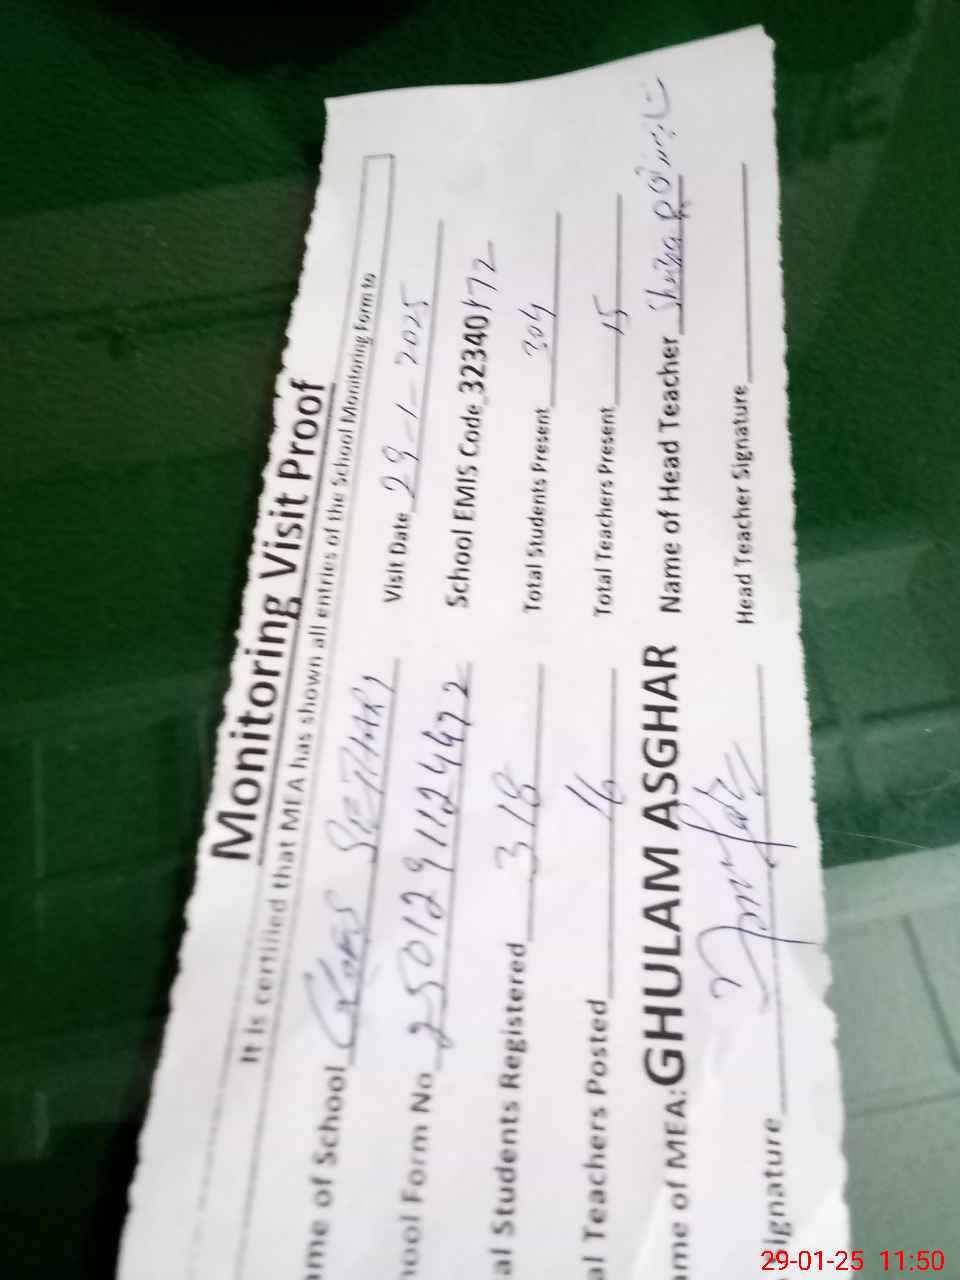 Monitoring Visit Proof
It is certified that MEA has shown all entries of the School Monitoring Form to
ame of School Visit Date 29-1-2025
hool Form No. 250129112472 School EMIS Code 32340172
al Students Registered 318 Total Students Present 304
al Teachers Posted 16 Total Teachers Present 15
me of MEA: GHULAM ASGHAR Name of Head Teacher
Signature Head Teacher Signature
29-01-25 11:50